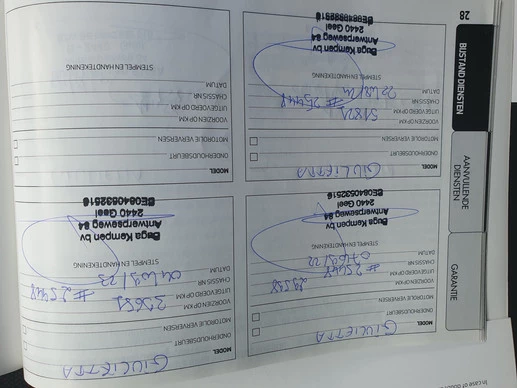 MODEL GIULIETTA
ONDERHOUDSBEURT
MOTOROLIE VERVERSEN
VOORZIEN OP KM
UITGEVOERD OP KM
CHASSIS NR #25448
DATUM
STEMPEL EN HANDTEKENING
Baga Kempen bv
Antwerpseweg 84
2440 Geel
BE0840532516
MODEL GIULIETTA
ONDERHOUDSBEURT
MOTOROLIE VERVERSEN
VOORZIEN OP KM
UITGEVOERD OP KM
CHASSIS NR #25448
DATUM
STEMPEL EN HANDTEKENING
Baga Kempen bv
Antwerpseweg 84
2440 Geel
BE0840532516
MODEL GIULIETTA
ONDERHOUDSBEURT
MOTOROLIE VERVERSEN
VOORZIEN OP KM
UITGEVOERD OP KM 51821
CHASSIS NR #25448
DATUM
STEMPEL EN HANDTEKENING
Baga Kempen bv
Antwerpseweg 84
2440 Geel
BE0840532516
MODEL
ONDERHOUDSBEURT
MOTOROLIE VERVERSEN
VOORZIEN OP KM
UITGEVOERD OP KM
CHASSIS NR
DATUM
STEMPEL EN HANDTEKENING
GARANTIE
AANVULLENDE
DIENSTEN
BIJSTAND DIENSTEN
28
In case of